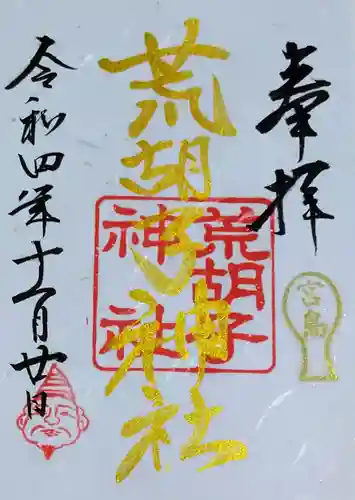 奉拝
荒胡子神社
荒胡子
神社
宮島
令和四年十一月廿日